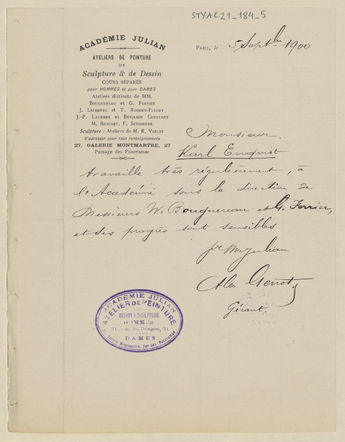 STYAC21_184_5
ACADÉMIE JULIAN
ATELIERS DE PEINTURE
DE
Sculpture & de Dessin
COURS SÉPARÉS
pour HOMMES et pour DAMES
Ateliers distincts de MM.
BOUGUEREAU et G. FERRIER
J. LEFEBVRE et T. ROBERT-FLEURY
J.-P. LAURENS et BENJAMIN CONSTANT
M. BASCHET, F. SCHOMMER
Sculpture: Ateliers de M. R. VERLET
S'adresser pour tous renseignements
27, GALERIE MONTMARTRE, 27
Passage des Panoramas
PARIS, le 5 Septbre 1900
Monsieur
Karl Enquist
travaille très régulièrement, à
l'Académie sous la direction de
Messieurs W. Bouguereau et G. Ferrier,
et ses progrès sont sensibles
pr Mr Julian
Gérant
ACADÉMIE JULIAN
ATELIER DE PEINTURE
DESSIN & SCULPTURE
DAMES